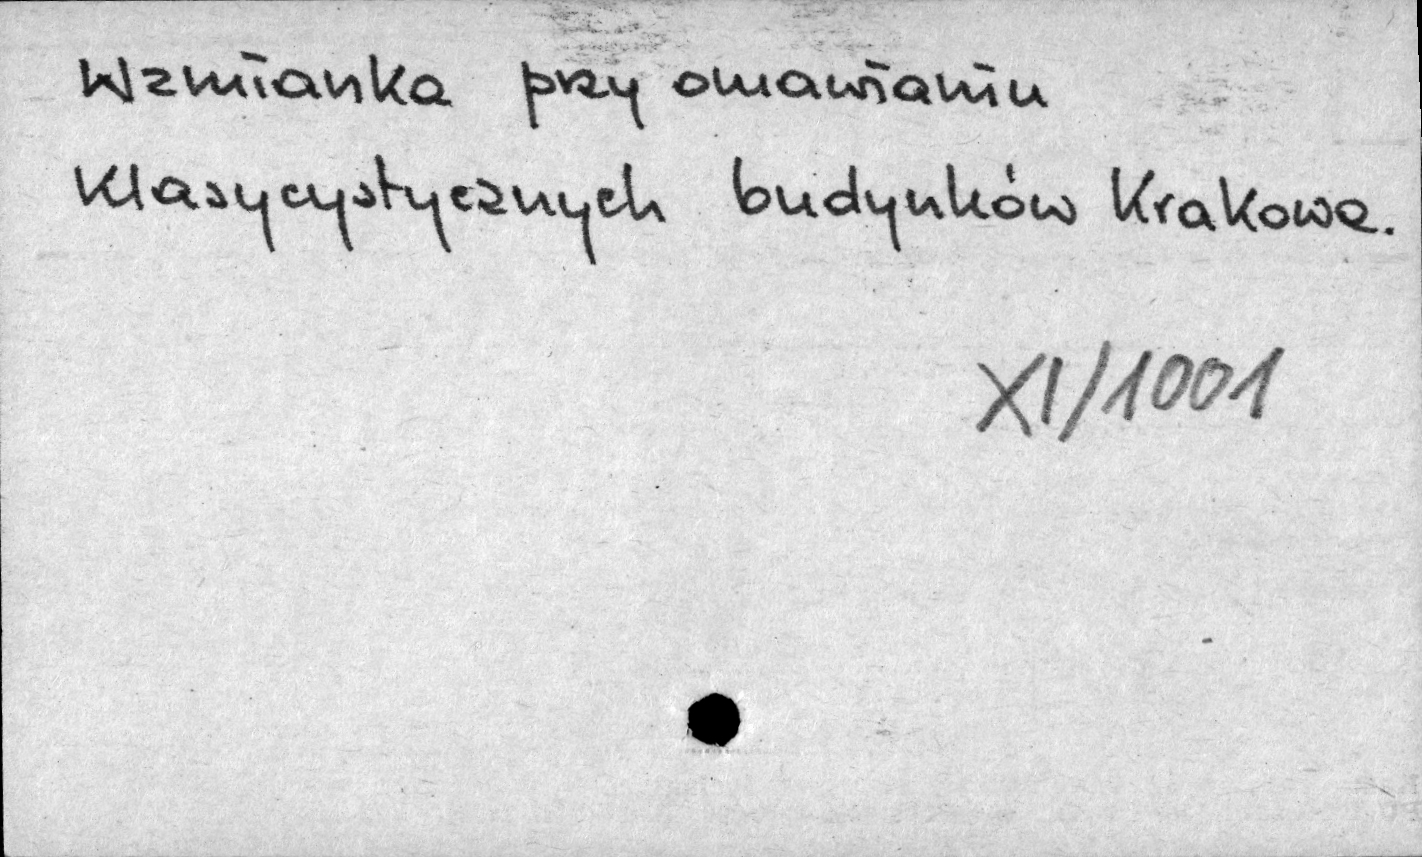 Wzmianka przy omawianiu
Klasycystycznych budynków Krakowa.
XI/1001